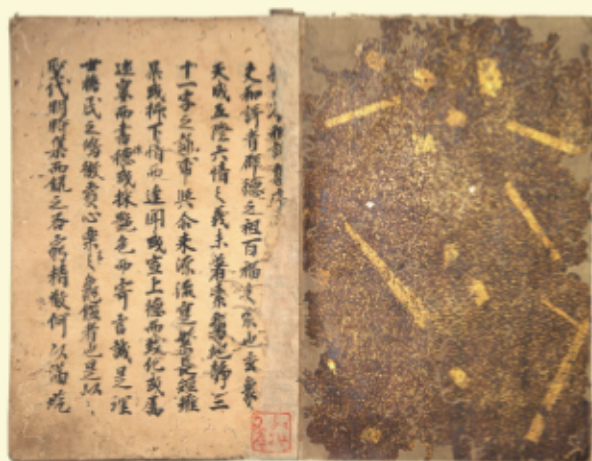 夫和謌者群德之祖百福之宗也玄象
天成五際六情之義未著素鵞地靜三
十一字之詠甫興尒来源流寔繁長短雖
異或抒下情而達聞或宣上德而致化或屬
遊宴而書懷或採艶色而寄言誠是理
世撫民之鴻徽賞心樂之龜鑑者也是以
聖代明時集而錄之各窮精微何以漏